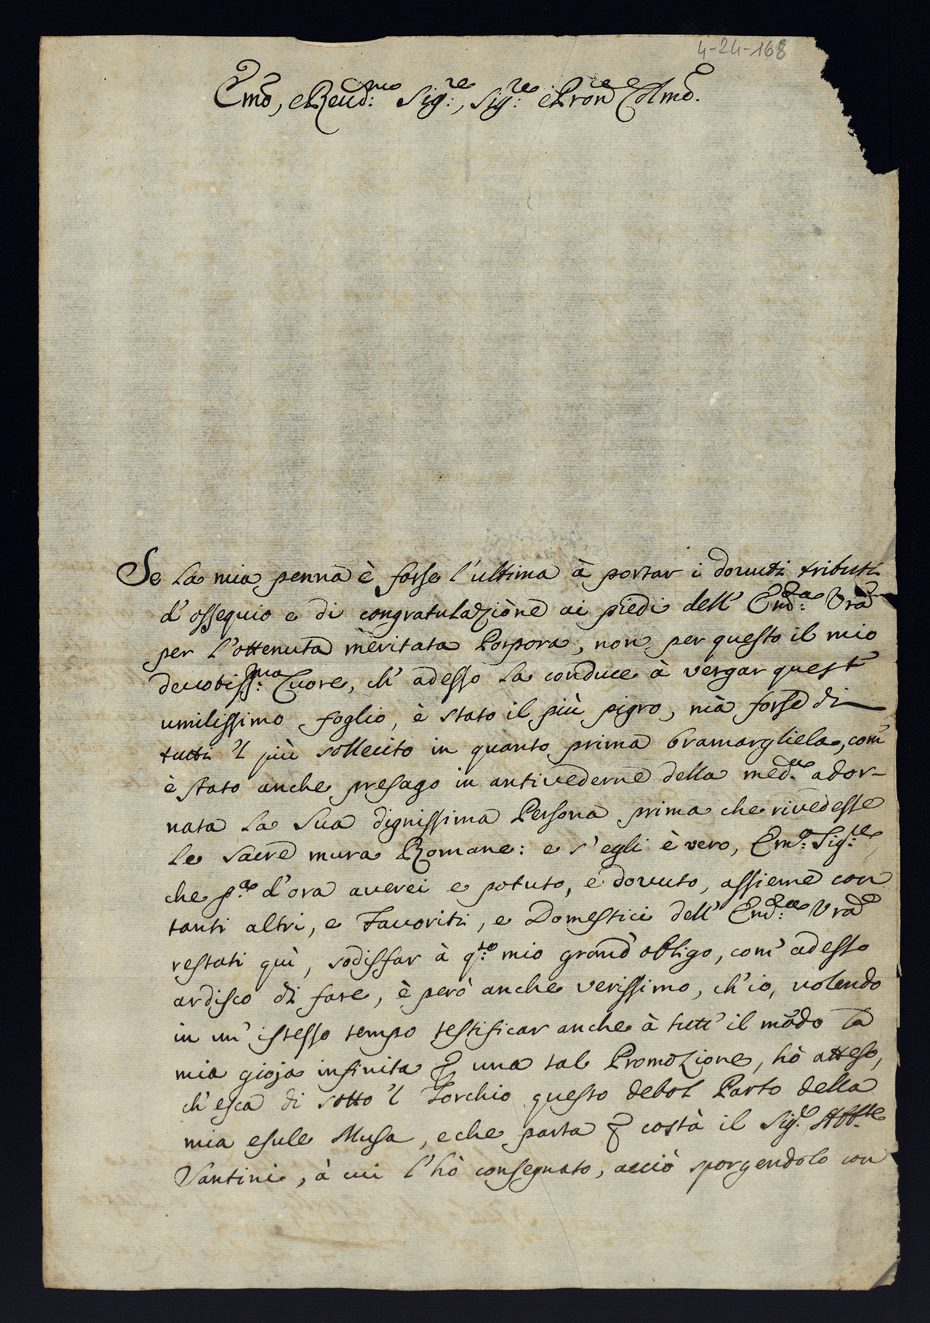 4-24-168
Em͞o, e Reud:mo Sig:re, Sig:re e Pro͞n Col͞mo.
Se la mia penna è forse l'ultima à portar i dovuti tributi
d'ossequio e di congratulazione ai piedi dell' Em͞:za Vra͞
per l'ottenuta meritata Porpora, non per questo il mio
devotiss:mo Cuore, ch' adesso la conduce à vergar quest'
umilissimo foglio, è stato il più pigro, mà forse di
tutti 'l più sollecito in quanto prima bramargliela, com'
è stato anche presago in antivederne della med:ma ador-
nata la Sua dignissima Persona prima che rivedesse
le sacre mura Romane: e s'egli è vero, Em:o Sig:re,
che p:a d'ora averei e potuto, e dovuto, assieme con
tanti altri, e Favoriti, e Domestici dell' Em͞:za Vra͞
restati quì, sodisfar à q:to mio grand' obligo, com' adesso
ardisco di fare, è però anche verissimo, ch'io, volendo
in un' istesso tempo testificar anche à tutt' il mo͞do la
mia gioja infinita una tal Promozione, hò atteso,
ch' esca di sotto 'l Torchio questo debol Parto della
mia esule Musa, e che parta costà il Sig:r Abb:te
Santini, à cui l'hò consegnato, acciò sporgendolo con